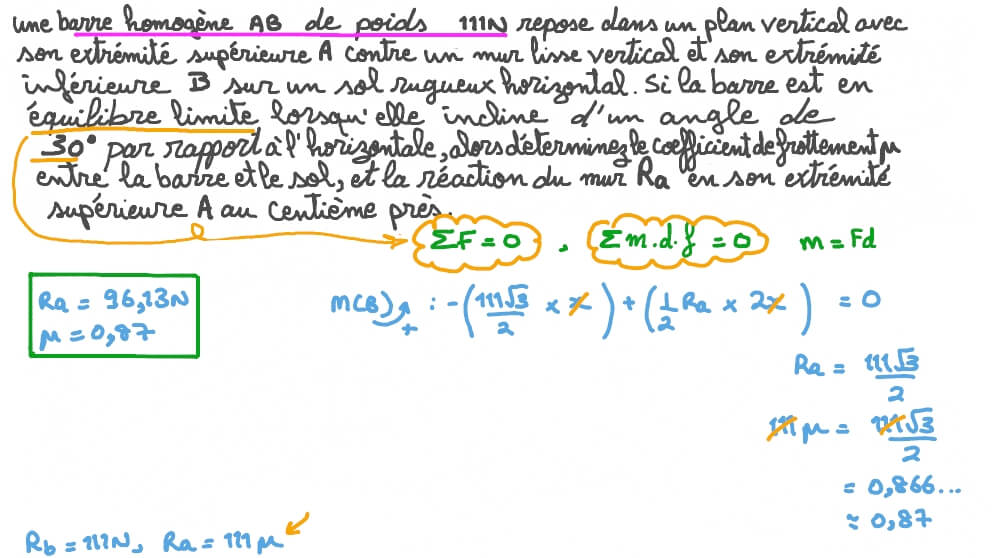 une barre homogène AB de poids 111N repose dans un plan vertical avec
son extrémité supérieure A contre un mur lisse vertical et son extrémité
inférieure B sur un sol rugueux horizontal. Si la barre est en
équilibre limite lorsqu'elle incline d'un angle de
30° par rapport à l'horizontale, alors déterminez le coefficient de frottement μ
entre la barre et le sol, et la réaction du mur Ra en son extrémité
supérieure A au centième près.
ΣF = 0 , Σm.d.f = 0 m = Fd
Ra = 96,13N
μ = 0,87
M(B) + : -(111√3/2 × x) + (1/2 Ra × 2x) = 0
Ra = 111√3/2
111μ = 111√3/2
= 0,866...
≈ 0,87
Rb = 111N, Ra = 111μ